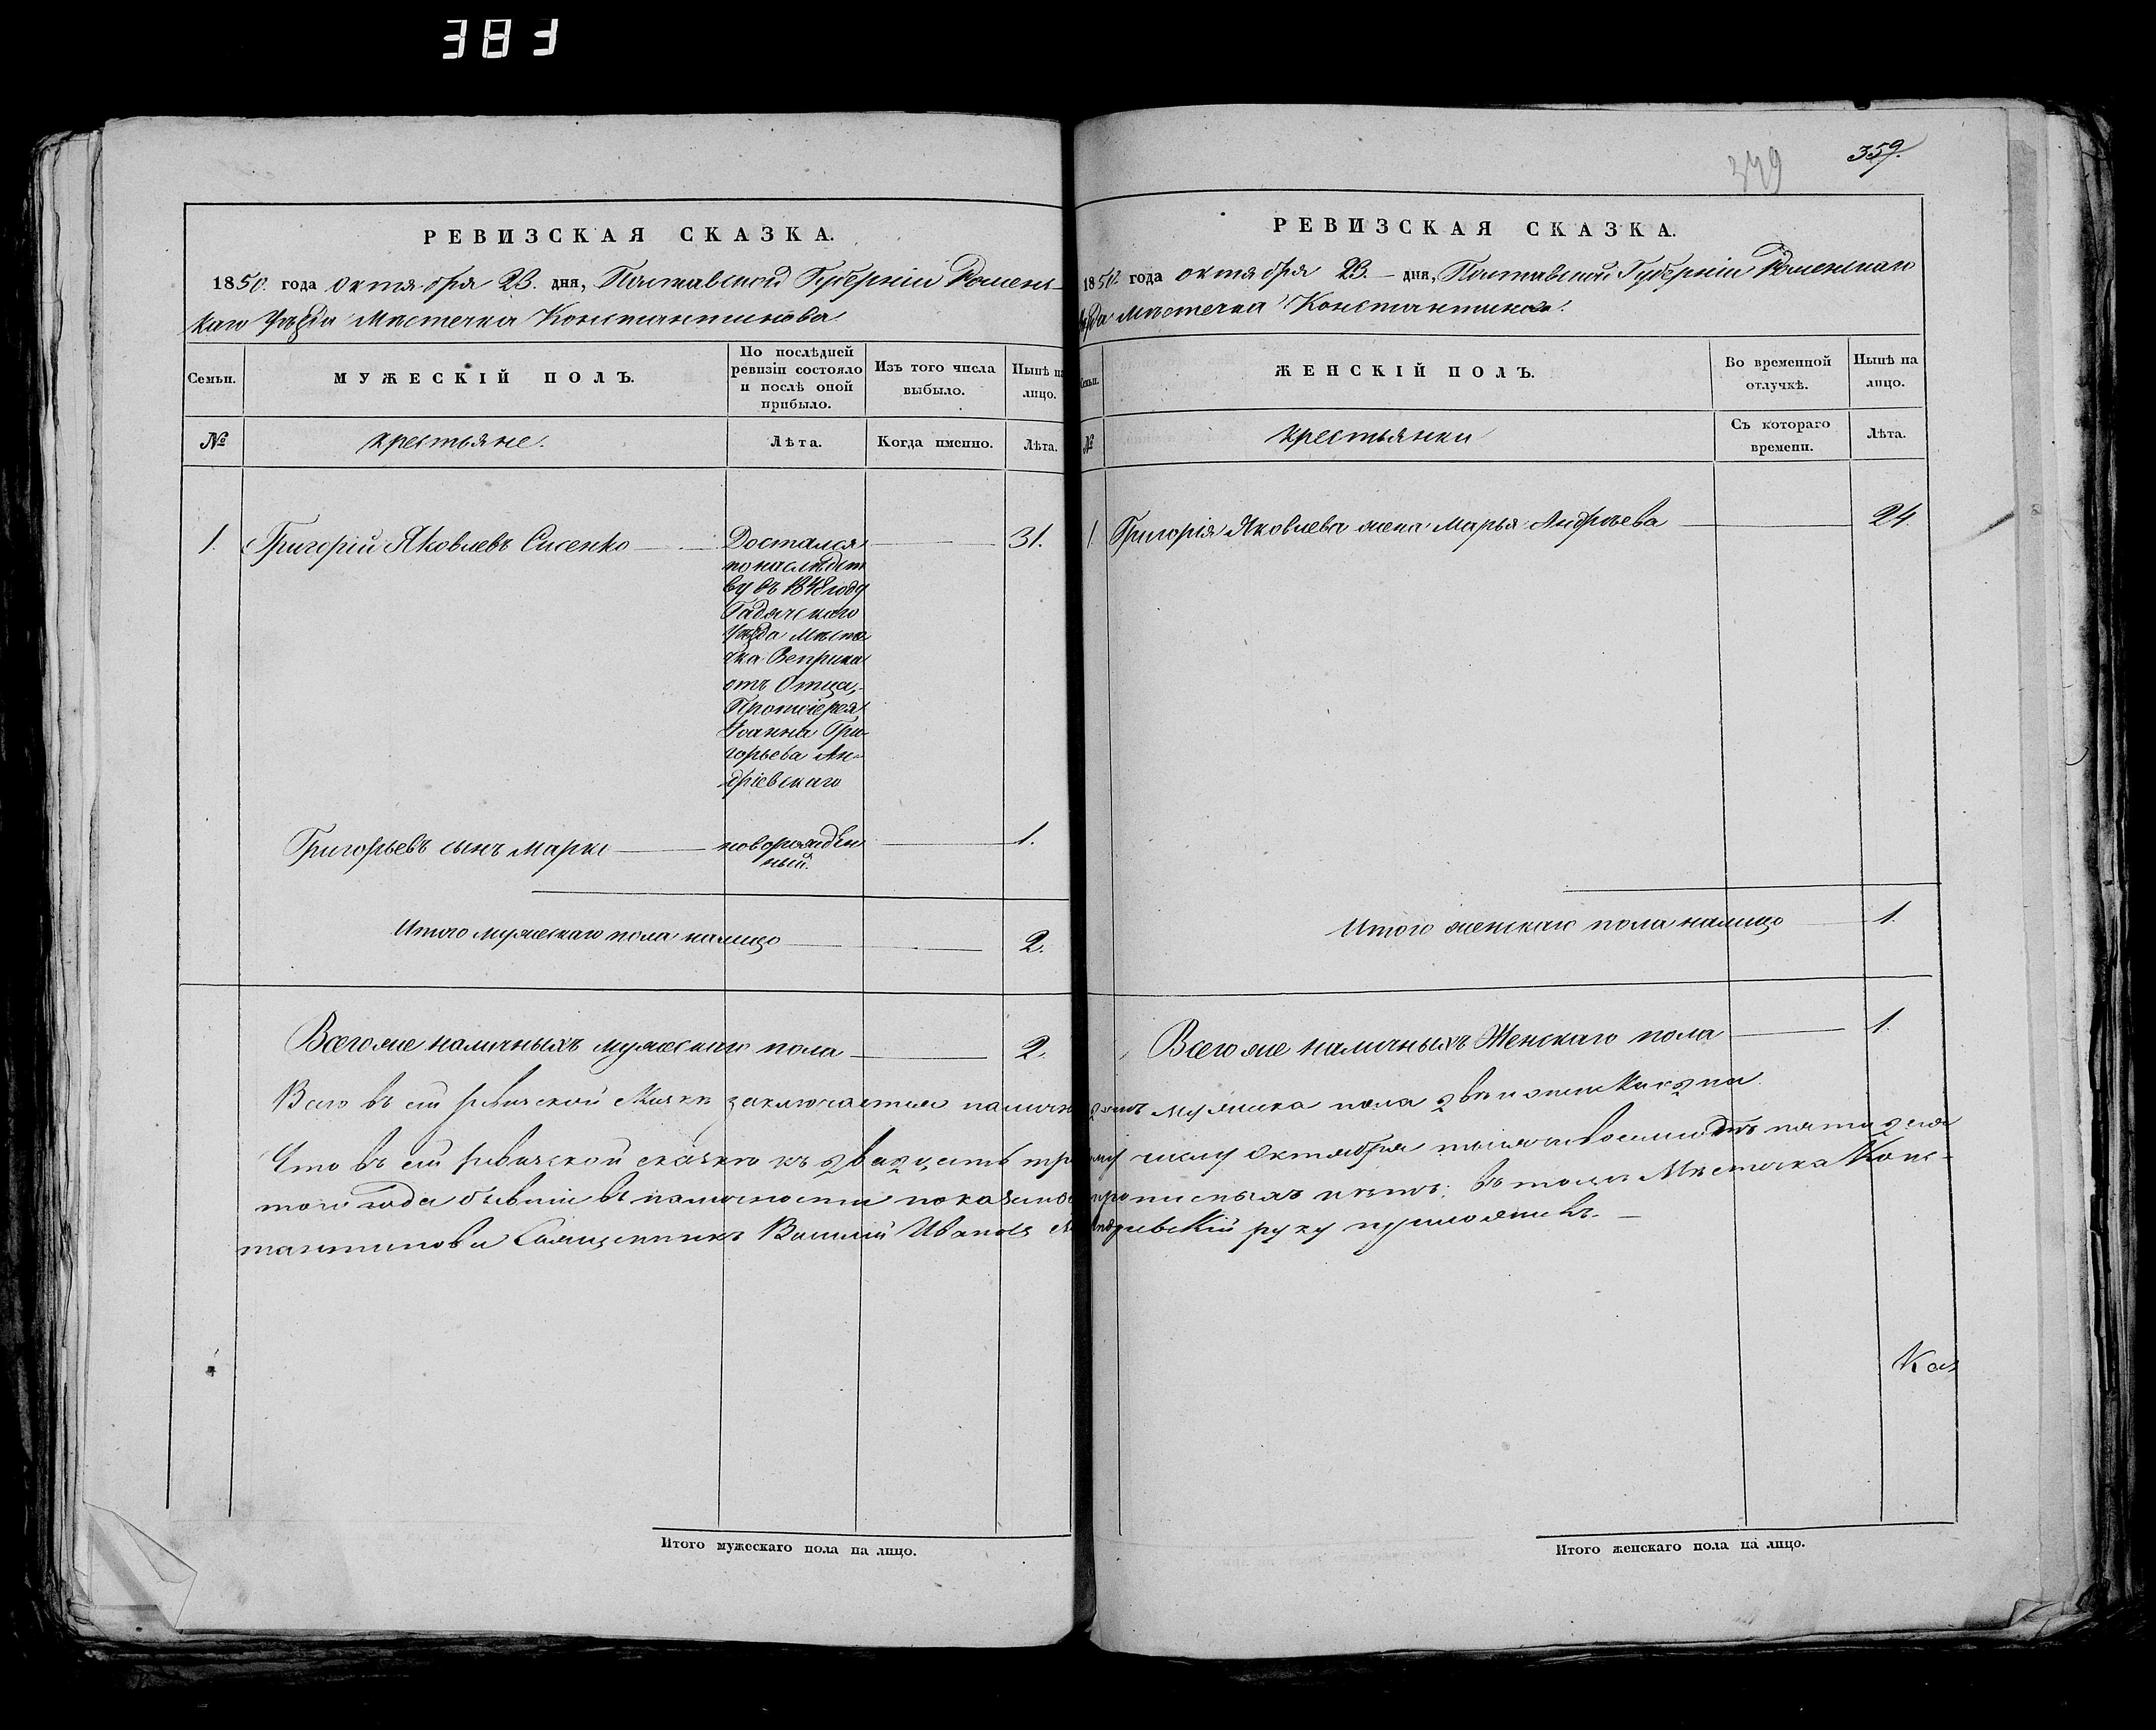 383
РЕВИЗСКАЯ СКАЗКА.
1850. года октября 23. дня, Полтавской Губерніи Роменс-
каго Уѣзда Мѣстечка Константинова
Семьи.
МУЖЕСКІЙ ПОЛЪ.
По послѣдней ревизіи состояло и послѣ оной прибыло.
Изъ того числа выбыло.
Нынѣ на лицо.
№
крестьяне.
Лѣта.
Когда именно.
Лѣта.
1. Григорій Яковлевъ Сисенко
Достался
по наслѣдст
ву въ 1848 году
Гадячскаго
Уѣзда Мѣсте
чка Веприка
отъ Отца,
Протоіерея
Іоанна Гри-
горьева Ан-
дріевскаго
31.
Григорьевъ сынъ Марко
новорожден
ный.
1.
Итого мужескаго пола налицо 2.
Всего же наличныхъ мужескаго пола 2.
359.
349
РЕВИЗСКАЯ СКАЗКА.
1850. года октября 23. дня, Полтавской Губерніи Роменскаго
уѣзда Мѣстечка Константинова.
Семьи.
ЖЕНСКІЙ ПОЛЪ.
Во временной отлучкѣ.
Нынѣ на лицо.
№
крестьянки
Съ котораго времени.
Лѣта.
1. Григорія Яковлева жена Марья Андреева 24.
Итого женскаго пола налицо 1.
Всего же наличныхъ Женскаго пола 1.
Всего въ сей ревизской сказкѣ заключается налично душъ мужеска пола двѣ и женска одна
Что въ сей ревизской сказкѣ къ двадцать третьему числу Октября тысяча восемьсотъ пятидеся
таго года бывшіе въ наличности показаны прописныхъ нѣтъ; въ томъ Мѣстечка Конс-
тантинова Священникъ Василій Ивановъ Андріевскій руку приложилъ.
Каз
Итого мужескаго пола на лицо.
Итого женскаго пола на лицо.